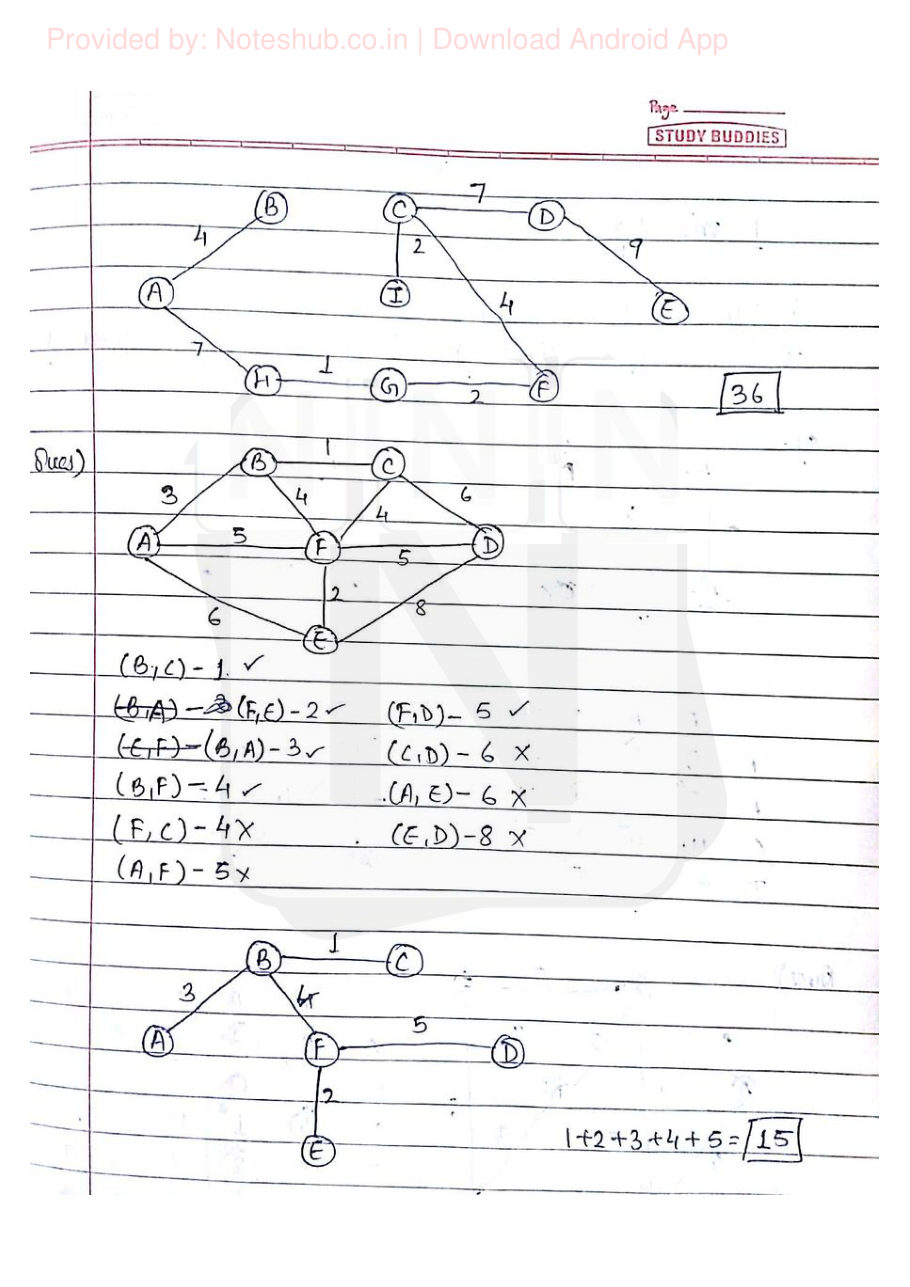 Provided by: Noteshub.co.in | Download Android App
Page
STUDY BUDDIES
7
B C D
4 2 9
A I 4 E
7 1
H G F
2
36
Ques) B 1 C
3 4 4 6
A 5 F 5 D
2
6 8
E
(B,C) - 1 ✓
(B,A) - 3 (F,E) - 2 ✓ (F,D) - 5 ✓
(E,F) - (B,A) - 3 ✓ (C,D) - 6 ×
(B,F) - 4 ✓ (A,E) - 6 ×
(F,C) - 4 × (E,D) - 8 ×
(A,F) - 5 ×
B 1 C
3 4
A F 5 D
2
E
1+2+3+4+5 = 15